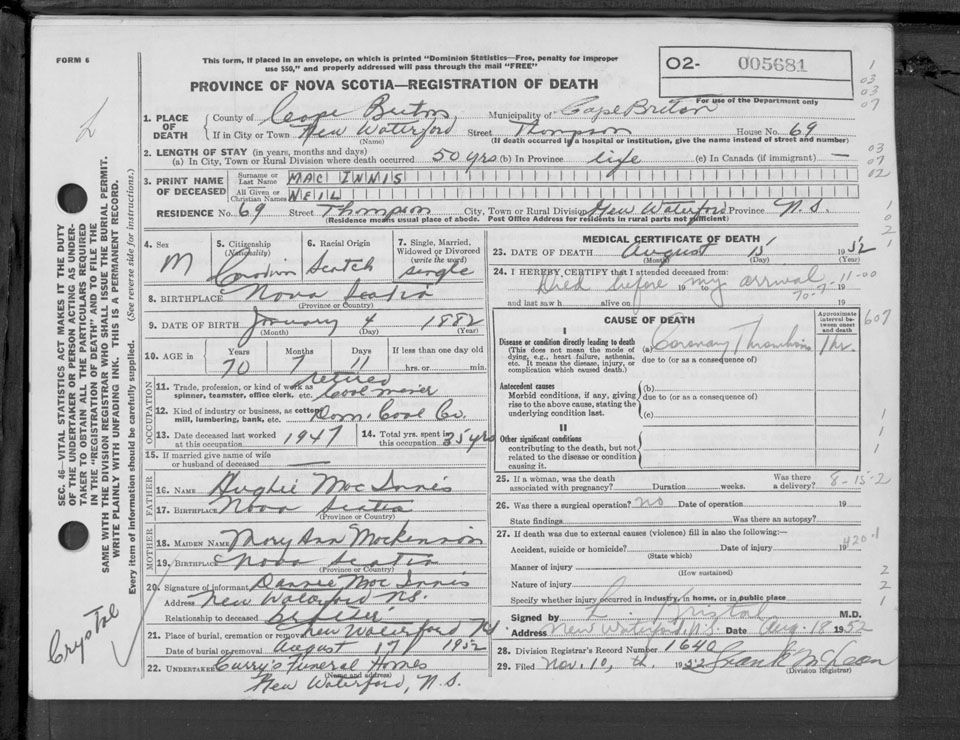 FORM 6
This form, if placed in an envelope, on which is printed "Dominion Statistics—Free, penalty for improper
use $50," and properly addressed will pass through the mail "FREE"
PROVINCE OF NOVA SCOTIA—REGISTRATION OF DEATH
02- 005681
For use of the Department only
1. PLACE OF DEATH
County of Cape Breton Municipality of Cape Breton
If in City or Town New Waterford Street Thompson House No. 69
(Name) (If death occurred in a hospital or institution, give the name instead of street and number)
2. LENGTH OF STAY (in years, months and days)
(a) In City, Town or Rural Division where death occurred 50 yrs (b) In Province life (c) In Canada (if immigrant) —
3. PRINT NAME OF DECEASED
Surname or Last Name MAC INNIS
All Given or Christian Names NEIL
RESIDENCE No. 69 Street Thompson City, Town or Rural Division New Waterford Province N.S.
(Residence means usual place of abode. Post Office Address for residents in rural parts not sufficient)
4. Sex M
5. Citizenship (Nationality)
6. Racial Origin Scotch
7. Single, Married, Widowed or Divorced (write the word) single
8. BIRTHPLACE Nova Scotia
(Province or Country)
9. DATE OF BIRTH January 4 1882
(Month) (Day) (Year)
10. AGE in Years 70 Months 7 Days 11 If less than one day old
hrs. or min.
OCCUPATION
11. Trade, profession, or kind of work as retired
spinner, teamster, office clerk, etc. Coal miner
12. Kind of industry or business, as cotton
mill, lumbering, bank, etc. Dom. Coal Co.
13. Date deceased last worked at this occupation 1947
14. Total yrs. spent in this occupation 35 yrs
15. If married give name of wife
or husband of deceased —
FATHER
16. NAME Hughie Mac Innis
17. BIRTHPLACE Nova Scotia
(Province or Country)
MOTHER
18. MAIDEN NAME Mary Ann Mackinnon
19. BIRTHPLACE Nova Scotia
(Province or Country)
20. Signature of informant Dannie Mac Innis
Address New Waterford N.S.
Relationship to deceased Brother
21. Place of burial, cremation or removal New Waterford N.S.
Date of burial or removal August 17 1952
22. UNDERTAKER Curry's Funeral Homes
(Name and address)
New Waterford, N.S.
MEDICAL CERTIFICATE OF DEATH
23. DATE OF DEATH August 15 1952
(Month) (Day) (Year)
24. I HEREBY CERTIFY that I attended deceased from:
Died before my arrival 11-00
19 19
70-7- 19
and last saw h alive on
CAUSE OF DEATH
Approximate interval between onset and death
I
Disease or condition directly leading to death
(This does not mean the mode of
dying, e.g., heart failure, asthenia,
etc. It means the disease, injury, or
complication which caused death.)
(a) Coronary Thrombosis 1 hr.
due to (or as a consequence of)
Antecedent causes
Morbid conditions, if any, giving
rise to the above cause, stating the
underlying condition last.
(b)
due to (or as a consequence of)
(c)
II
Other significant conditions
contributing to the death, but not
related to the disease or condition
causing it.
25. If a woman, was the death
associated with pregnancy? Duration weeks. Was there a delivery? 8-15-2
26. Was there a surgical operation? no Date of operation 19
State findings Was there an autopsy?
27. If death was due to external causes (violence) fill in also the following:—
Accident, suicide or homicide? Date of injury 19
420.1
(State which)
Manner of injury
(How sustained)
Nature of injury
Specify whether injury occurred in industry, in home, or in public place
Signed by L. Kristal M.D.
Address New Waterford, N.S. Date Aug. 18 1952
28. Division Registrar's Record Number 1640
29. Filed Nov. 10, th. 1952 Frank McLean
(Division Registrar)
SEC. 46—VITAL STATISTICS ACT MAKES IT THE DUTY
OF THE UNDERTAKER OR PERSON ACTING AS UNDER-
TAKER TO OBTAIN ALL THE PARTICULARS REQUIRED
IN THE "REGISTRATION OF DEATH" AND TO FILE THE
SAME WITH THE DIVISION REGISTRAR WHO SHALL ISSUE THE BURIAL PERMIT.
WRITE PLAINLY WITH UNFADING INK. THIS IS A PERMANENT RECORD.
Every item of information should be carefully supplied. (See reverse side for instructions.)
Crystal
1
03
03
07
03
07
02
1
0
2
1
607
1
1
1
2
2
1